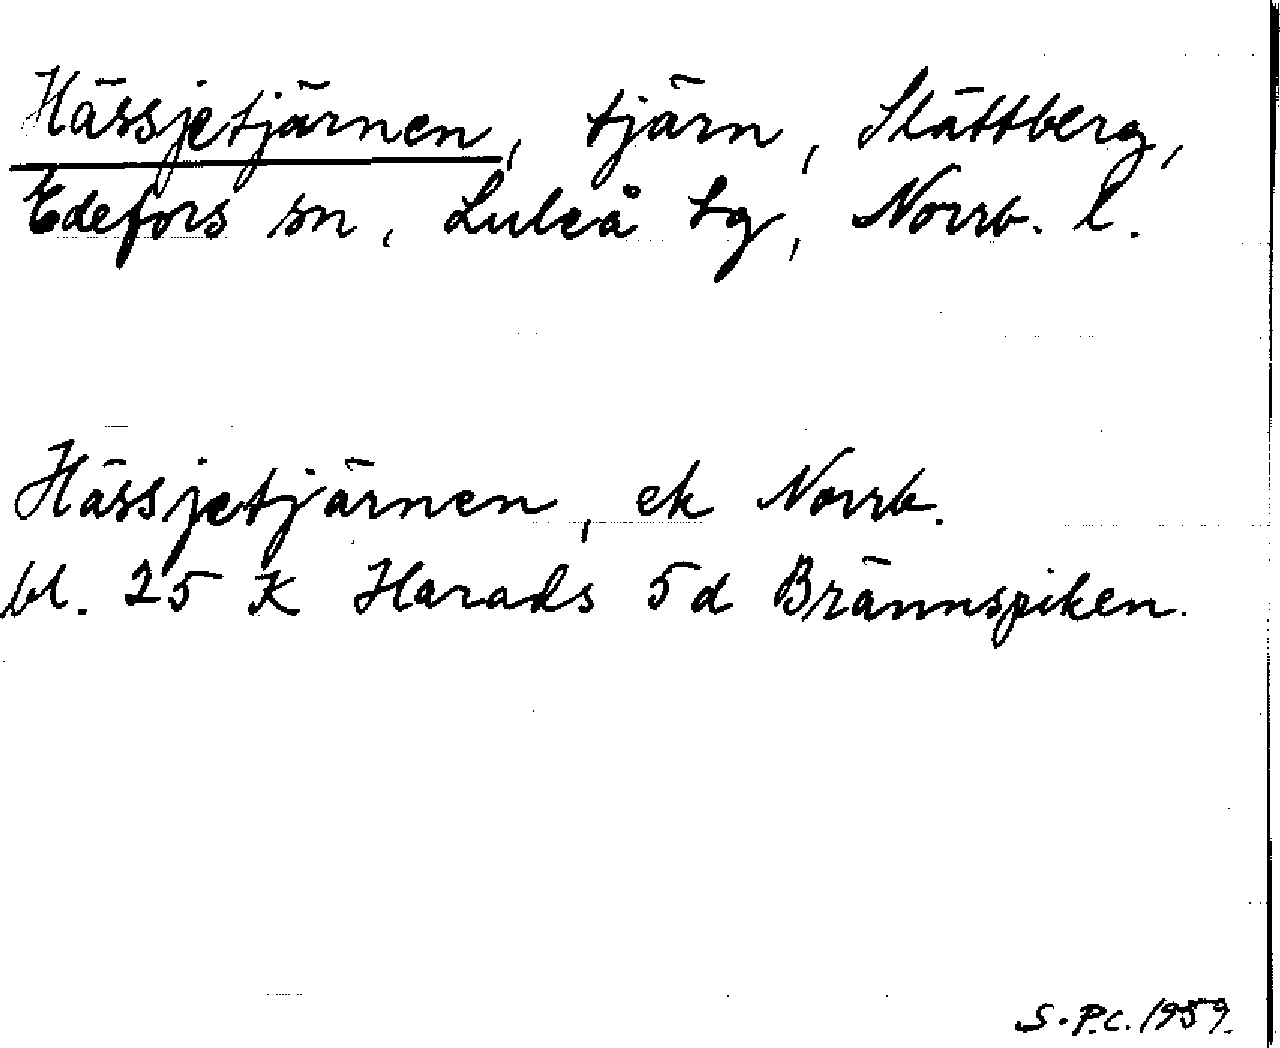 Hässjetjärnen, tjärn, Slättberg,
Edefors sn, Luleå tg, Norrb. l.
Hässjetjärnen, ek Norrb.
bl. 25 K Harads 5d Brännspiken.
S.P.C. 1959.